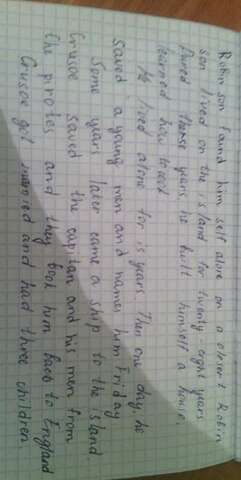 Robinson found him self alone on a Robin
son lived on the island for twenty-eight years
these years he built himself a house,
learned how to cook
He lived alone for 15 years. Then one day, he
saved a young men and names him Friday
Some years later came a ship to the island.
Crusoe saved the capitan and his men from
the pirotes and they took him back to England
Crusoe got married and had three children